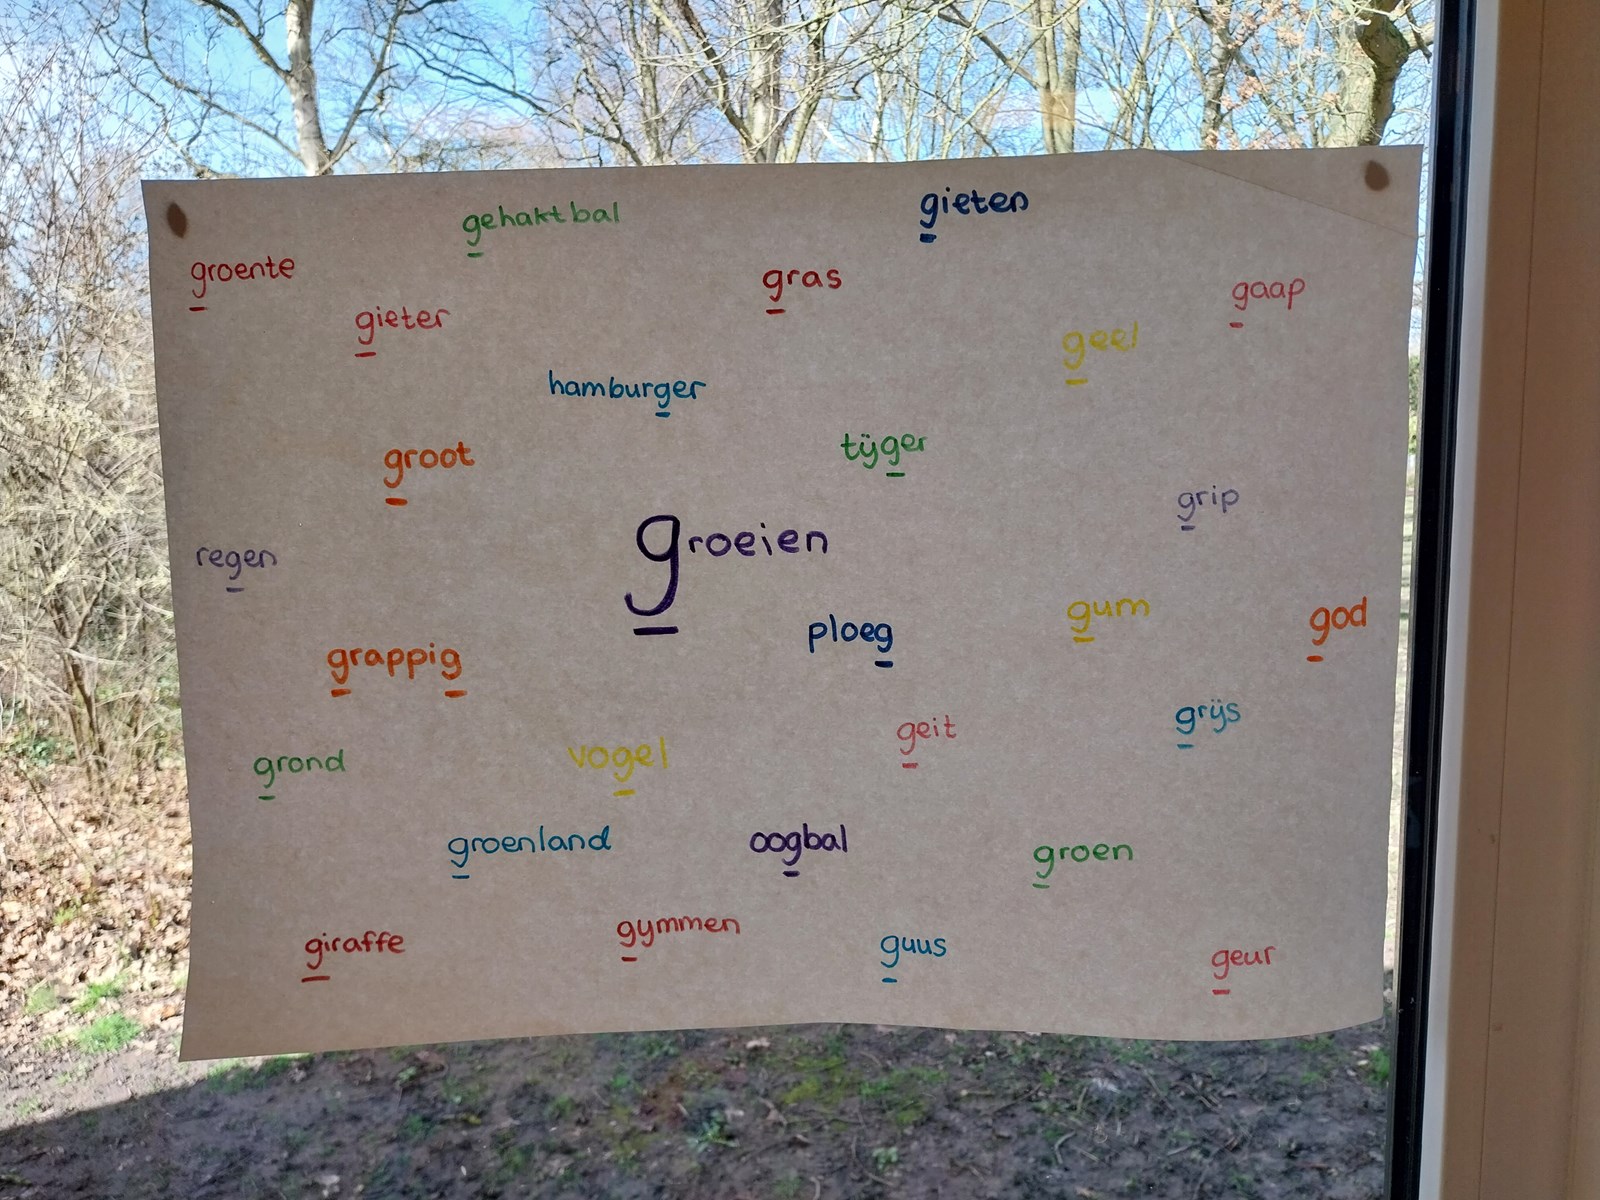 gehaktbal
gieten
groente
gras
gaap
gieter
geel
hamburger
groot
tijger
grip
groeien
regen
gum
god
ploeg
grappig
grijs
geit
grond
vogel
groenland
oogbal
groen
giraffe
gymmen
guus
geur